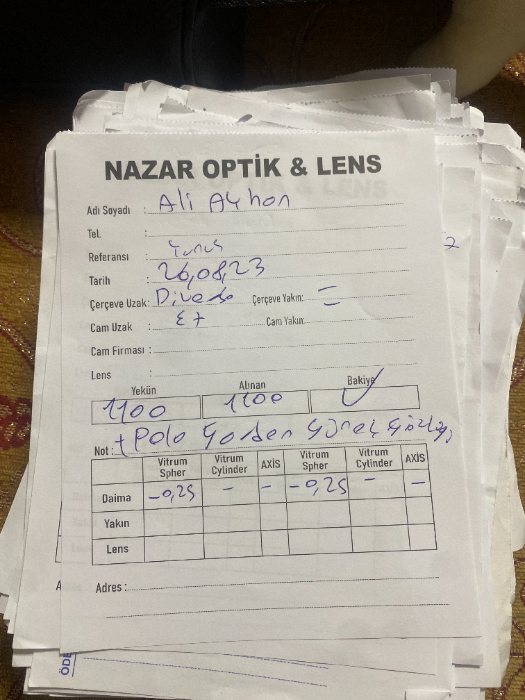 NAZAR OPTİK & LENS
Adı Soyadı : Ali Ayhan
Tel. :
Referansı : Yunus
Tarih : 26,08,23
Çerçeve Uzak: Çerçeve Yakın: =
Cam Uzak : Cam Yakın:
Cam Firması :
Lens :
Yekün Alınan Bakiye
1100 1100 ✓
Not : + Polo Güneş
Vitrum Spher Vitrum Cylinder AXİS Vitrum Spher Vitrum Cylinder AXİS
Daima -0,25 - - -0,25 - -
Yakın
Lens
Adres :
A
ÖDE